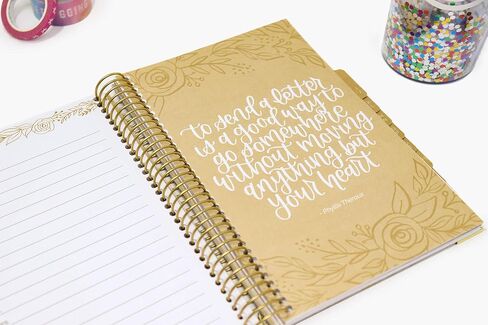 GOING
to send a letter
is a good way to
go somewhere
without moving
anything but
your heart
- Phyllis Theroux